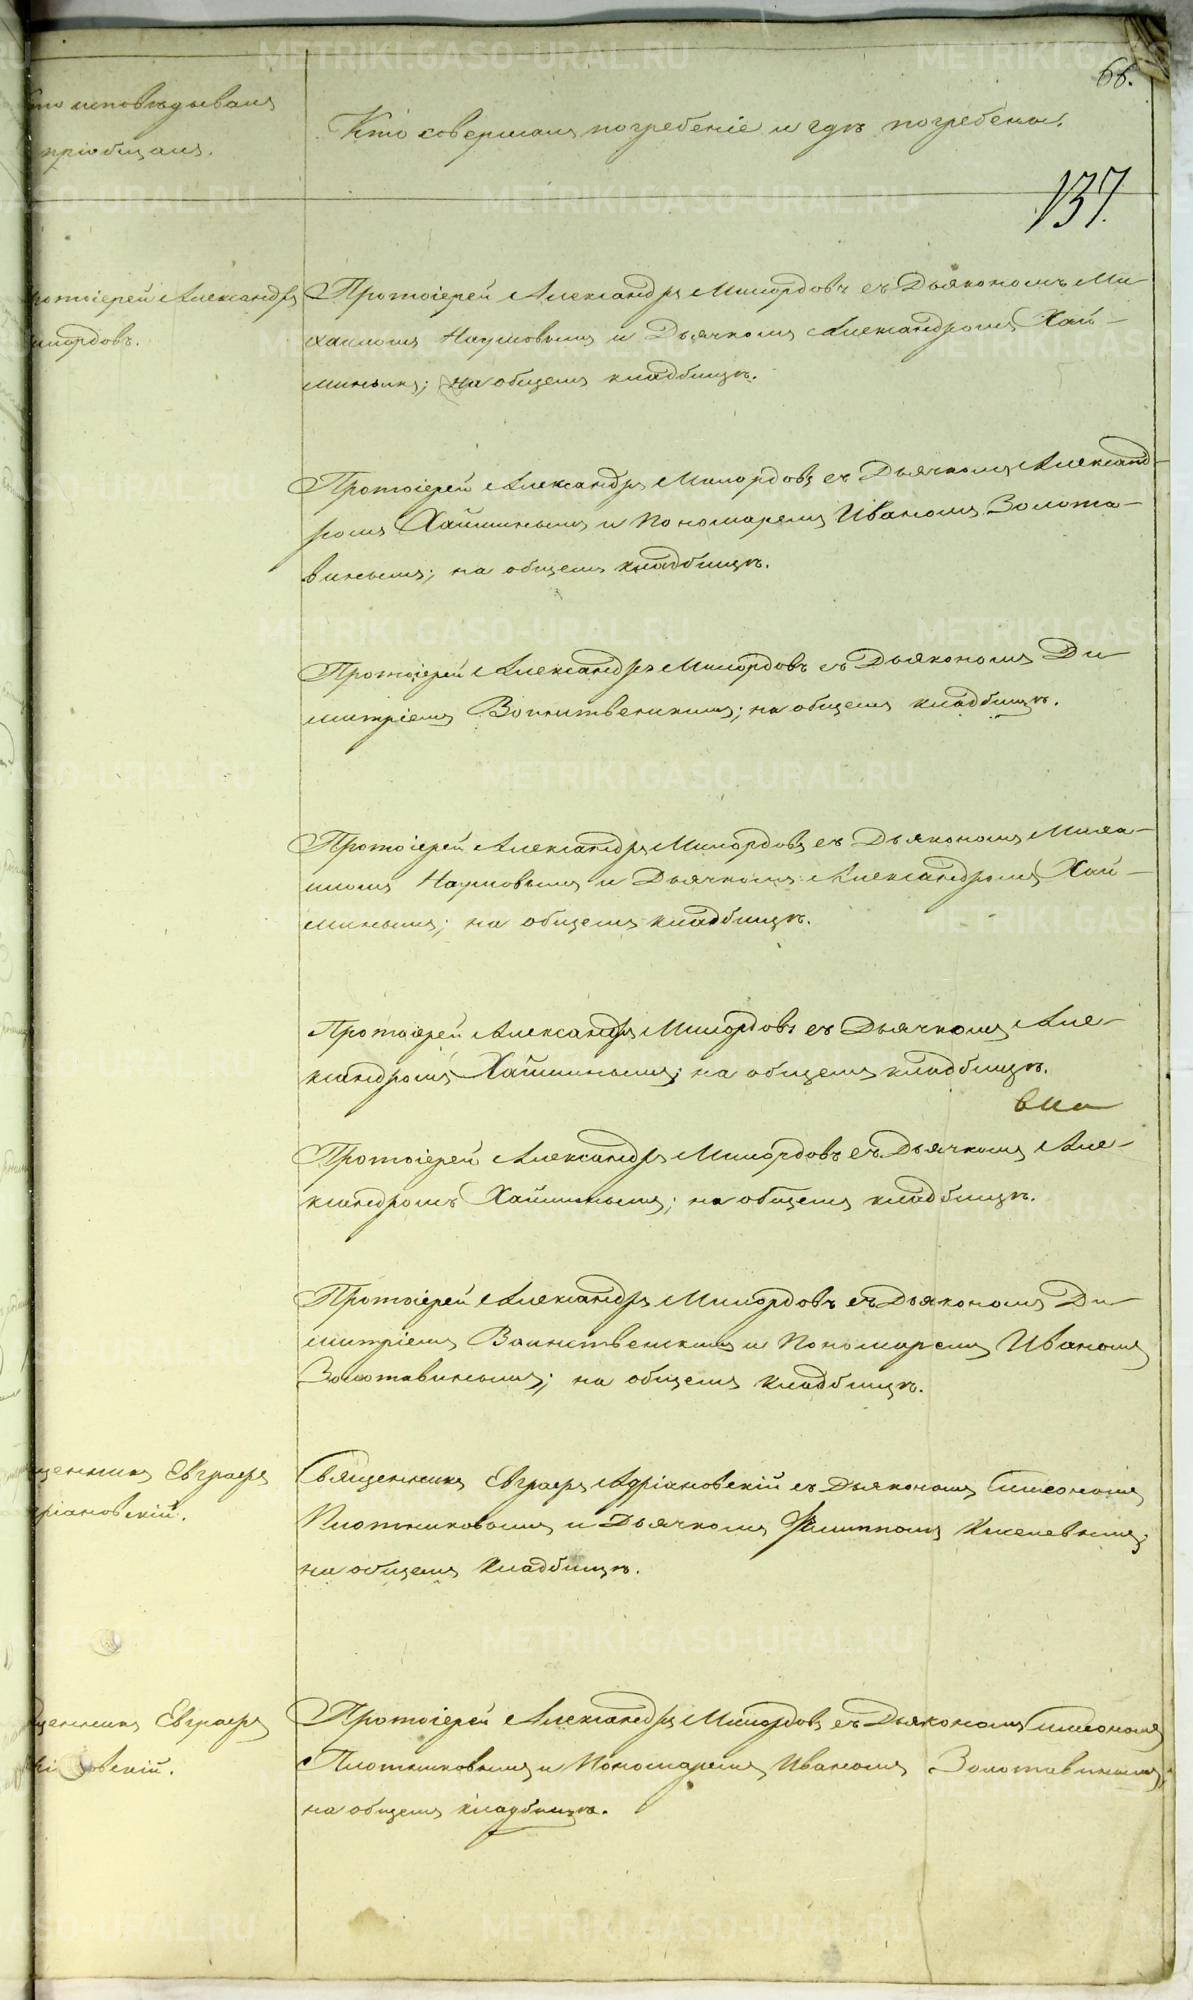 66.
Кто исповѣдывалъ
пріобщалъ.
Кто совершалъ погребеніе и гдѣ погребены.
137.
Протоіерей Александръ
Милордовъ.
Протоіерей Александръ Милордовъ съ Дьякономъ Ми-
хаиломъ Наумовымъ и Дьячкомъ Александромъ Хай-
минымъ; на общемъ кладбищѣ.
Протоіерей Александръ Милордовъ съ Дьячкомъ Александ-
ромъ Хайминымъ и Пономаремъ Иваномъ Золота-
винымъ; на общемъ кладбищѣ.
Протоіерей Александръ Милордовъ съ Дьякономъ Ди
митріемъ Воинственскимъ; на общемъ кладбищѣ.
Протоіерей Александръ Милордовъ съ Дьякономъ Михаи-
ломъ Наумовымъ и Дьячкомъ Александромъ Хай-
минымъ; на общемъ кладбищѣ.
Протоіерей Александръ Милордовъ съ Дьячкомъ Але-
ксандромъ Хайминымъ; на общемъ кладбищѣ.
Протоіерей Александръ Милордовъ съ Дьячкомъ Але-
ксандромъ Хайминымъ; на общемъ кладбищѣ.
Протоіерей Александръ Милордовъ съ Дьякономъ Ди
митріемъ Воинственскимъ и Пономаремъ Иваномъ
Золотавинымъ; на общемъ кладбищѣ.
щенникъ Евграфъ
ріановскій.
Священникъ Евграфъ Адріановскій съ Дьякономъ Симеономъ
Плотниковымъ и Дьячкомъ Филиппомъ Киселевымъ;
на общемъ кладбищѣ.
щенникъ Евграфъ
овскій.
Протоіерей Александръ Милордовъ съ Дьякономъ Симеономъ
Плотниковымъ и Пономаремъ Иваномъ Золотавинымъ;
на общемъ кладбищѣ.
METRIKI.GASO-URAL.RU